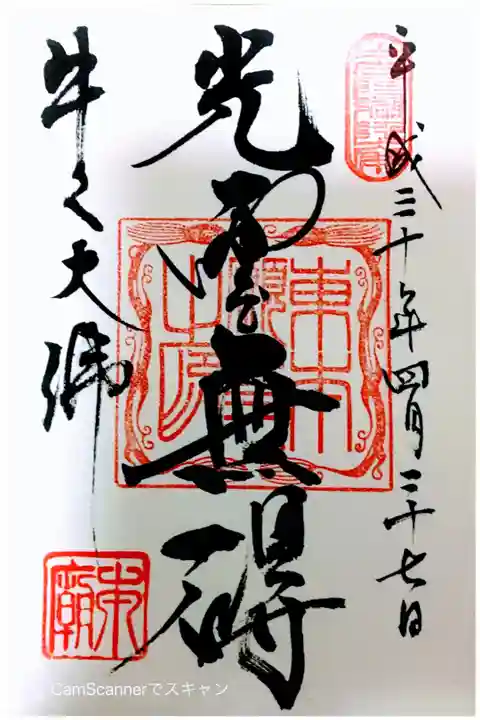 平成三十年四月二十七日
光雲無碍
牛久大佛
東本願寺之印
CamScannerでスキャン